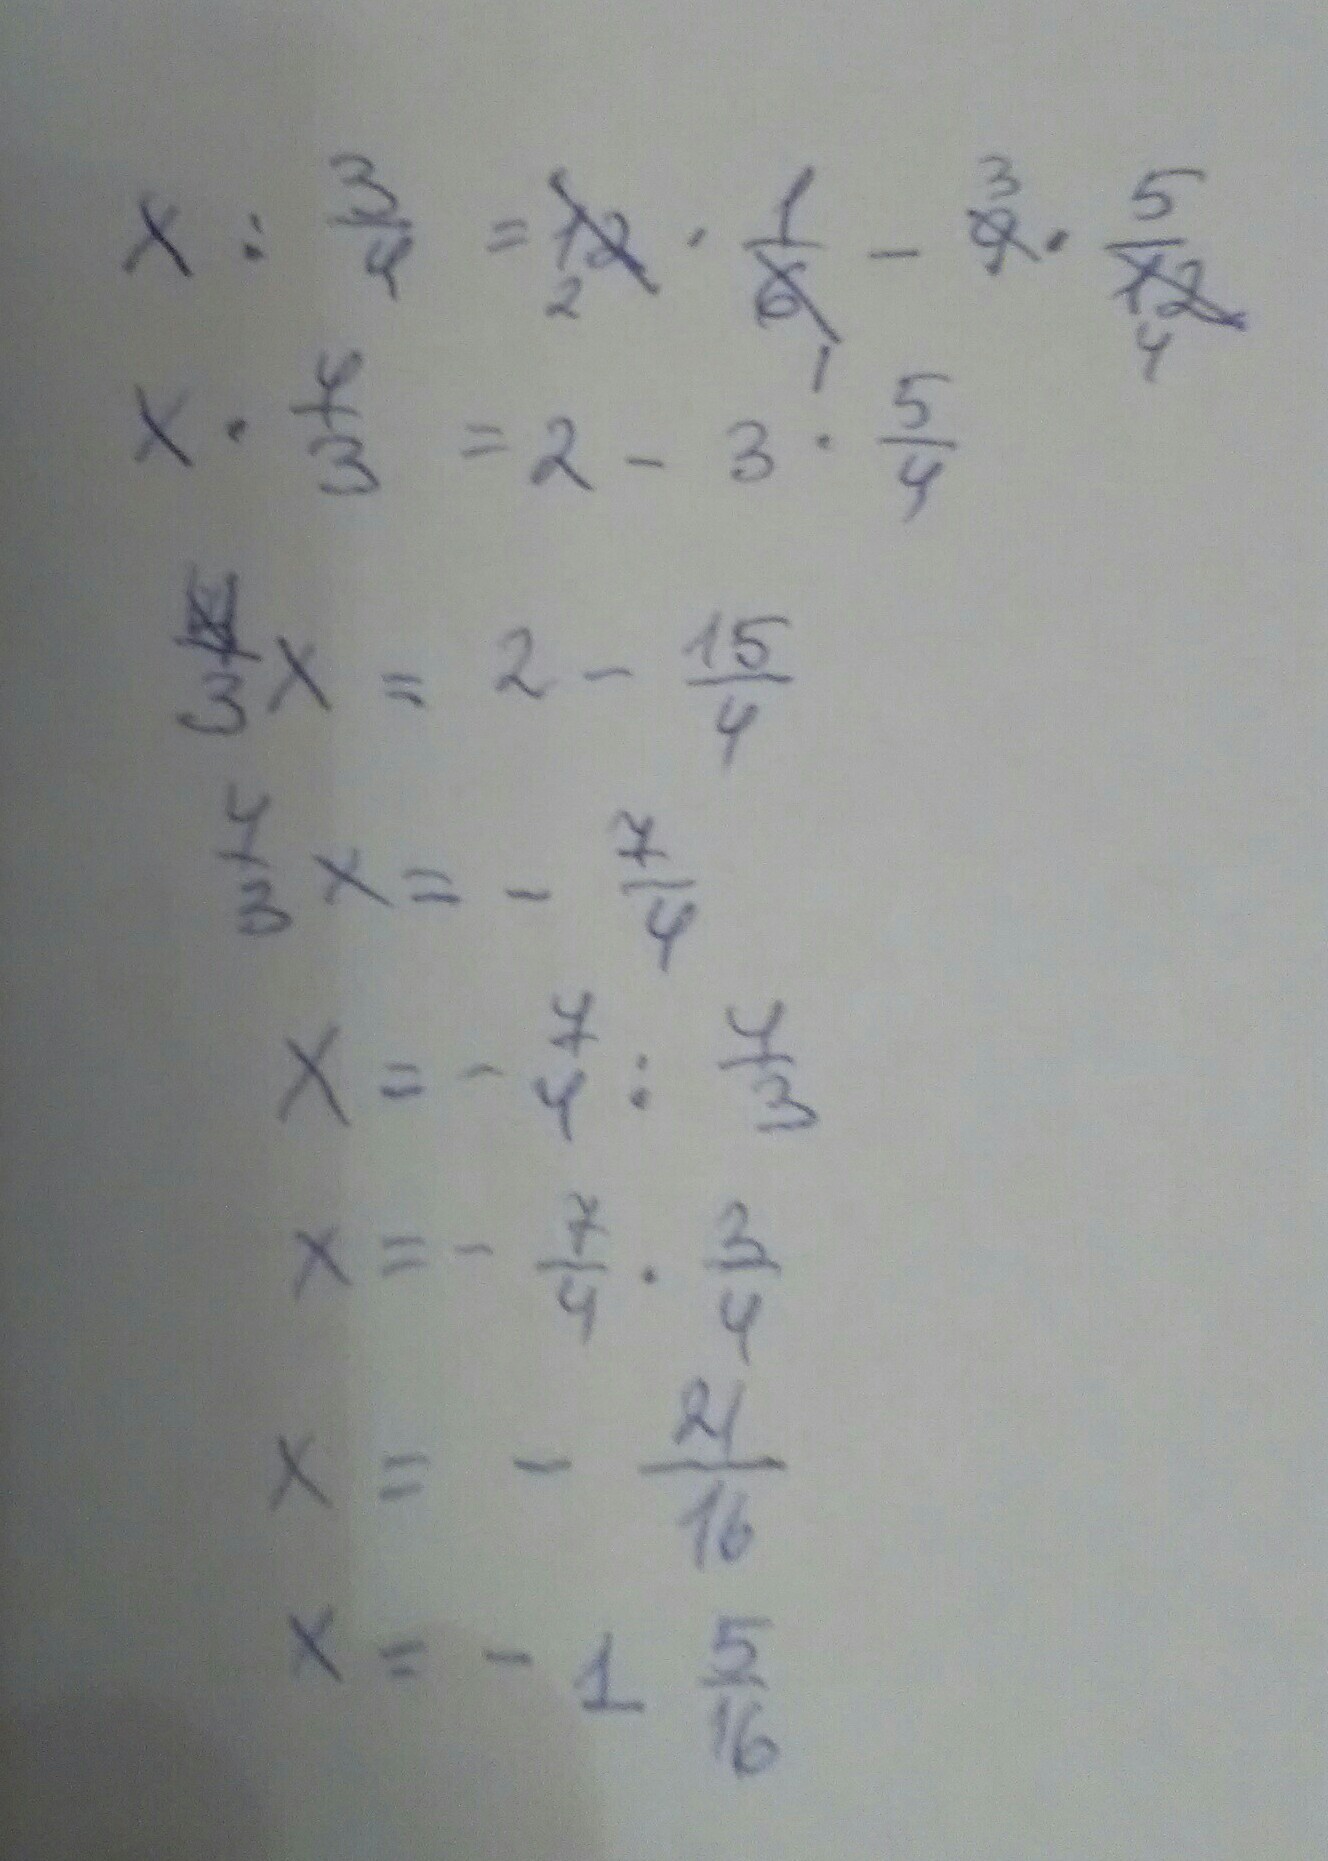 x : 3/4 = 12 2 · 1/6 1 - 9 3 · 5/12 4
x · 4/3 = 2 - 3 · 5/4
4/3 x = 2 - 15/4
4/3 x = - 7/4
x = - 7/4 : 4/3
x = - 7/4 · 3/4
x = - 21/16
x = - 1 5/16